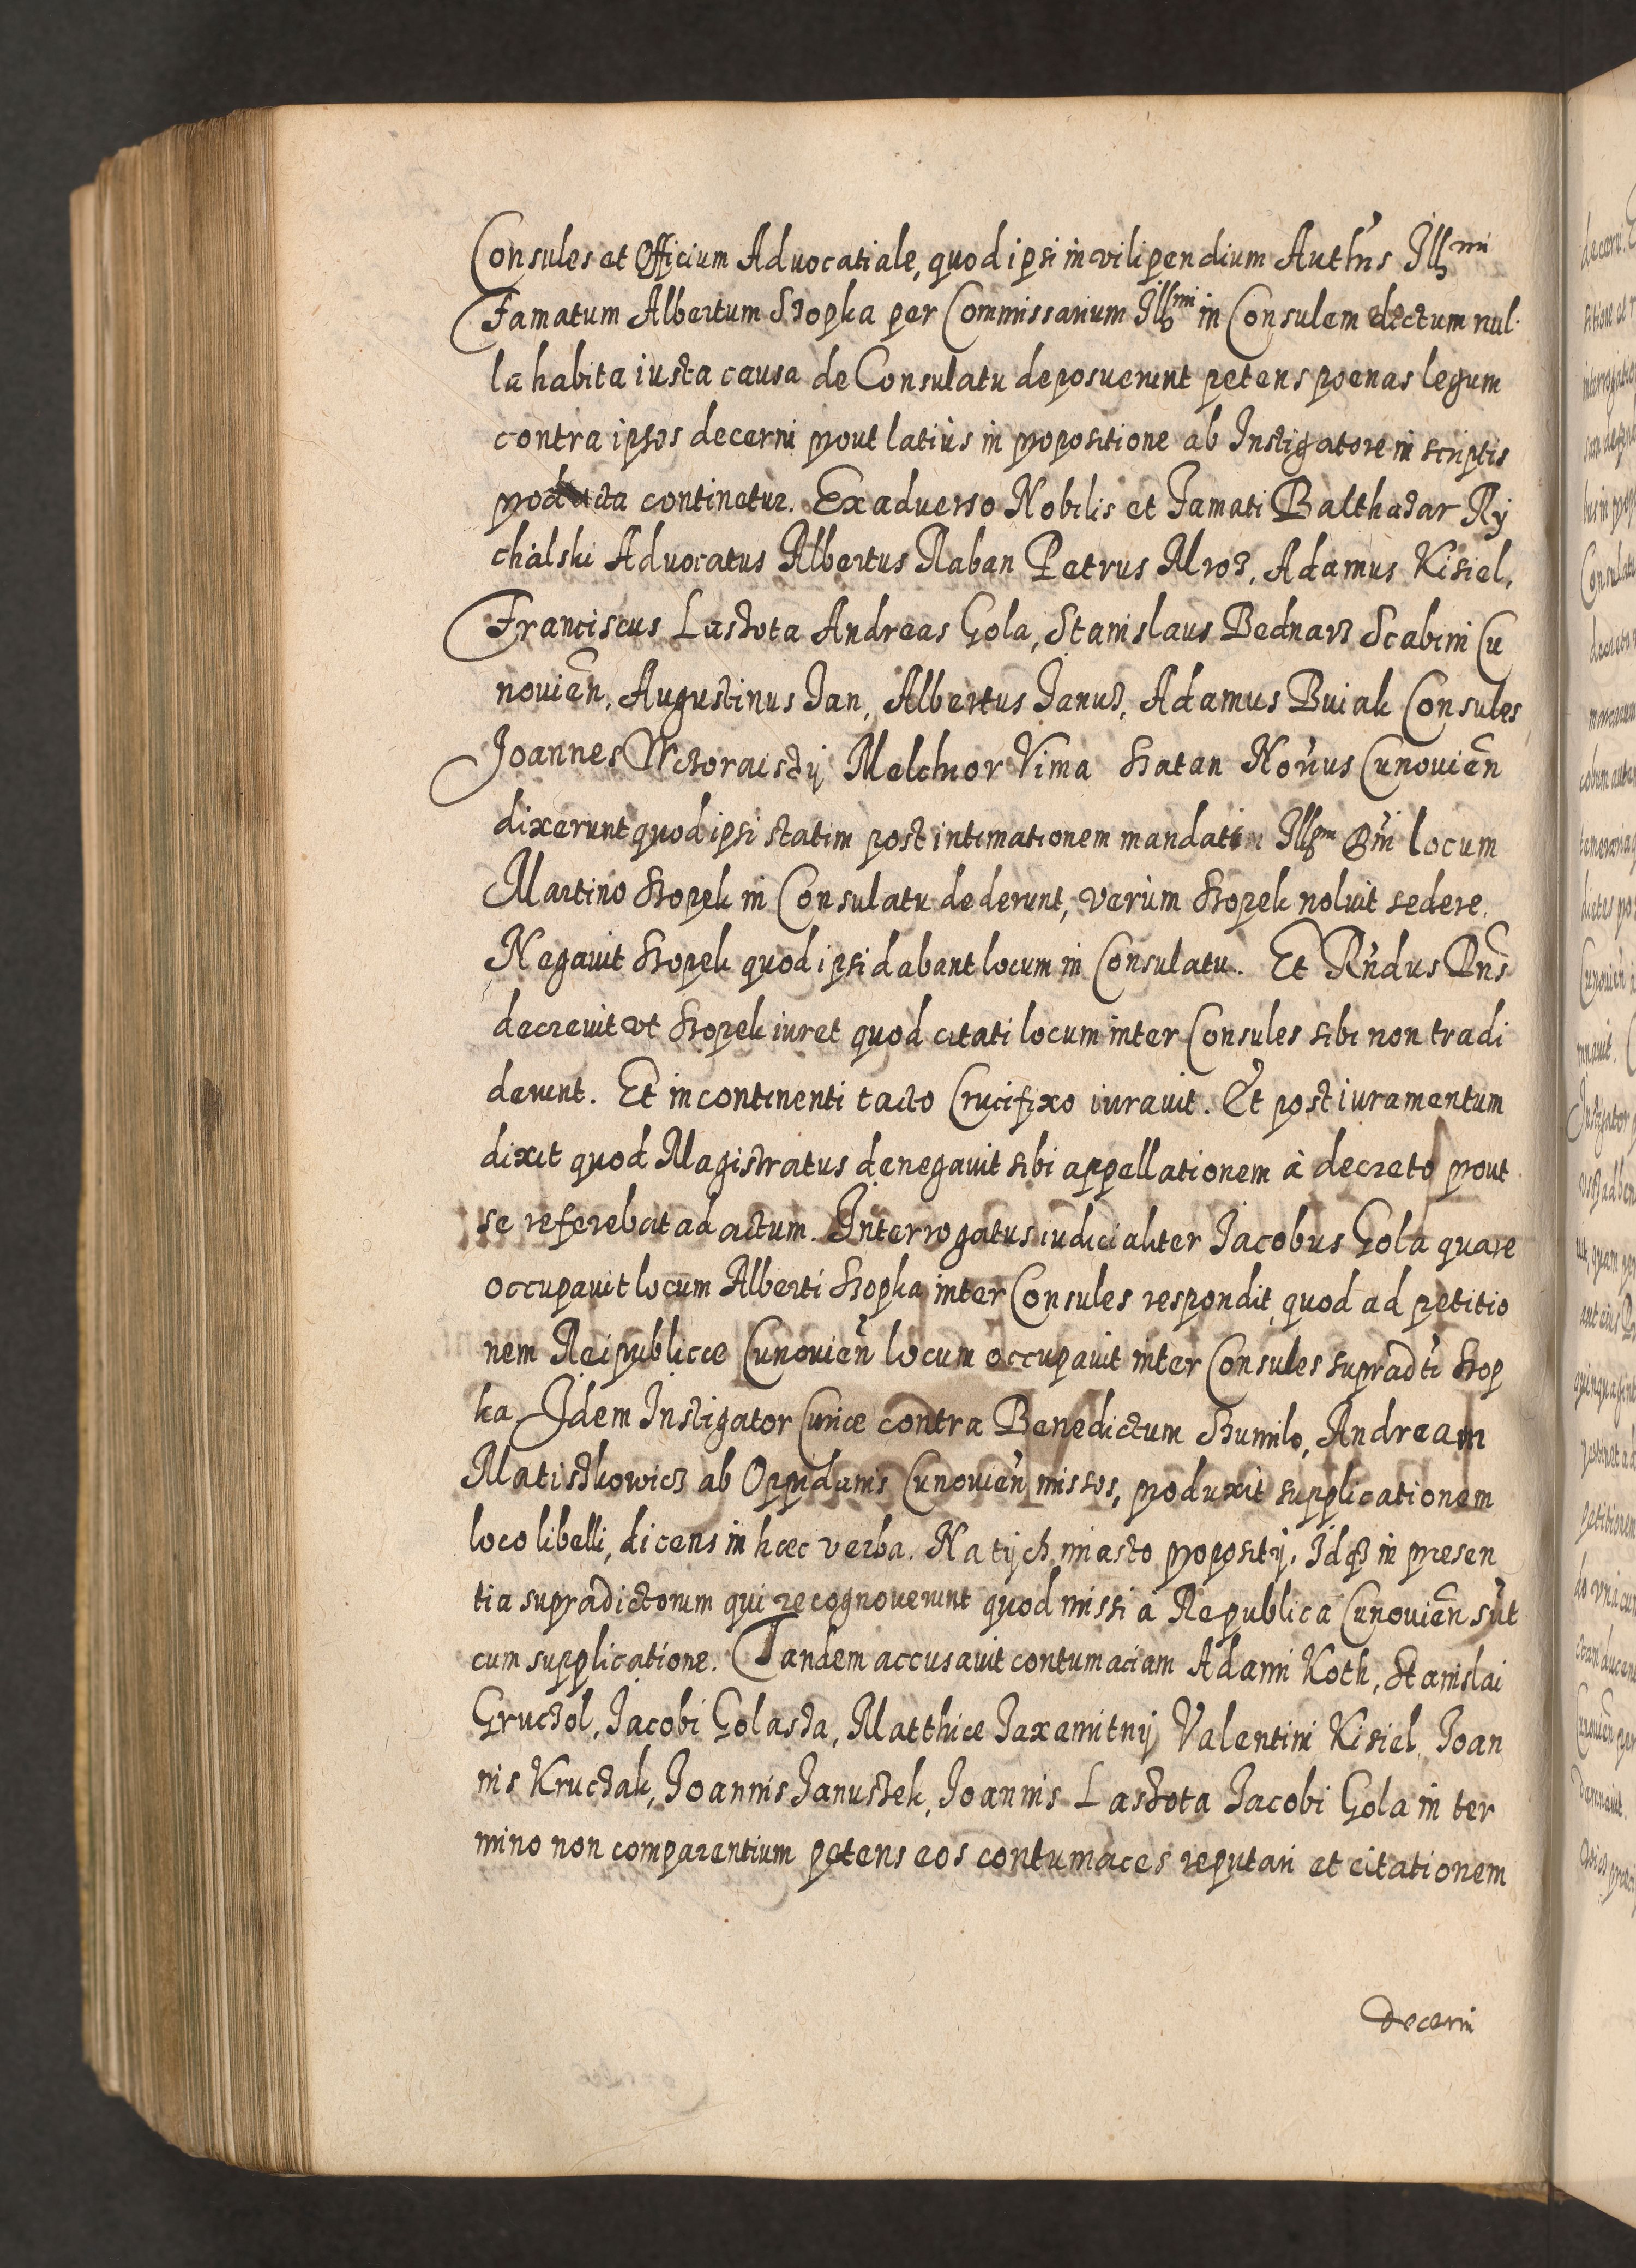 Consules et Officium Aduocatiale, quod ipsi in vilipendium Auth'ris Illmi
Famatum Albertum Skopka per Commissarium Illmi in Consulem electum nul
la habita iusta causa de Consulatu deposuerunt petens poenas legum
contra ipsos decerni prout latiùs in propositione ab Instigatore in scriptis
producta continetur. Ex aduerso Nobilis et Famati Balthazar Ry
chalski Aduocatus Albertus Raban Petrus Mroz, Adamus Kisiel,
Franciscus Laszota Andreas Gola, Stanislaus Bednarz Scabini Cu
nouien, Augustinus Jan, Albertus Janus, Adamus Buiak Consules
Joannes Melchior Vima Cunouien
dixerunt quod ipsi statim post intimationem mandati Illmi locum
Martino Skopek in Consulatu dederunt, verùm Skopek noluit sedere.
Negauit Skopek quod ipsi dabant locum in Consulatu. Et Rndus Dns
decreuit vt Skopek iuret quod citati locum inter Consules sibi non tradi
derunt. Et in continenti tacto Crucifixo iurauit. Et post iuramentum
dixit quod Magistratus denegauit sibi appellationem à decreto prout
se referebat ad actum. Interrogatus iudicialiter Jacobus Gola quare
occupauit locum Alberti Skopka inter Consules respondit, quod ad petitio
nem Reipublicæ Cunouien locum occupauit inter Consules supradti Skop
ka. Idem Instigator Curiæ contra Benedictum Andream
Matiszkowicz ab Oppidanis Cunouien missos, produxit supplicationem
loco libelli, dicens in hæc verba. Na tych miasto propositij. Idq in presen
tia supradictorum qui recognouerunt quod missi à Republica Cunouien sut
cum supplicatione. Tandem accusauit contumaciam Adami Koth, Stanislai
Gruczol, Jacobi Golasza, Matthiæ Jaxamitny Valentini Kisiel, Joan
nis Kruczak, Joannis Januszek, Joannis Laszota Jacobi Gola in ter
mino non comparentium petens eos contumaces reputari et citationem
decerni